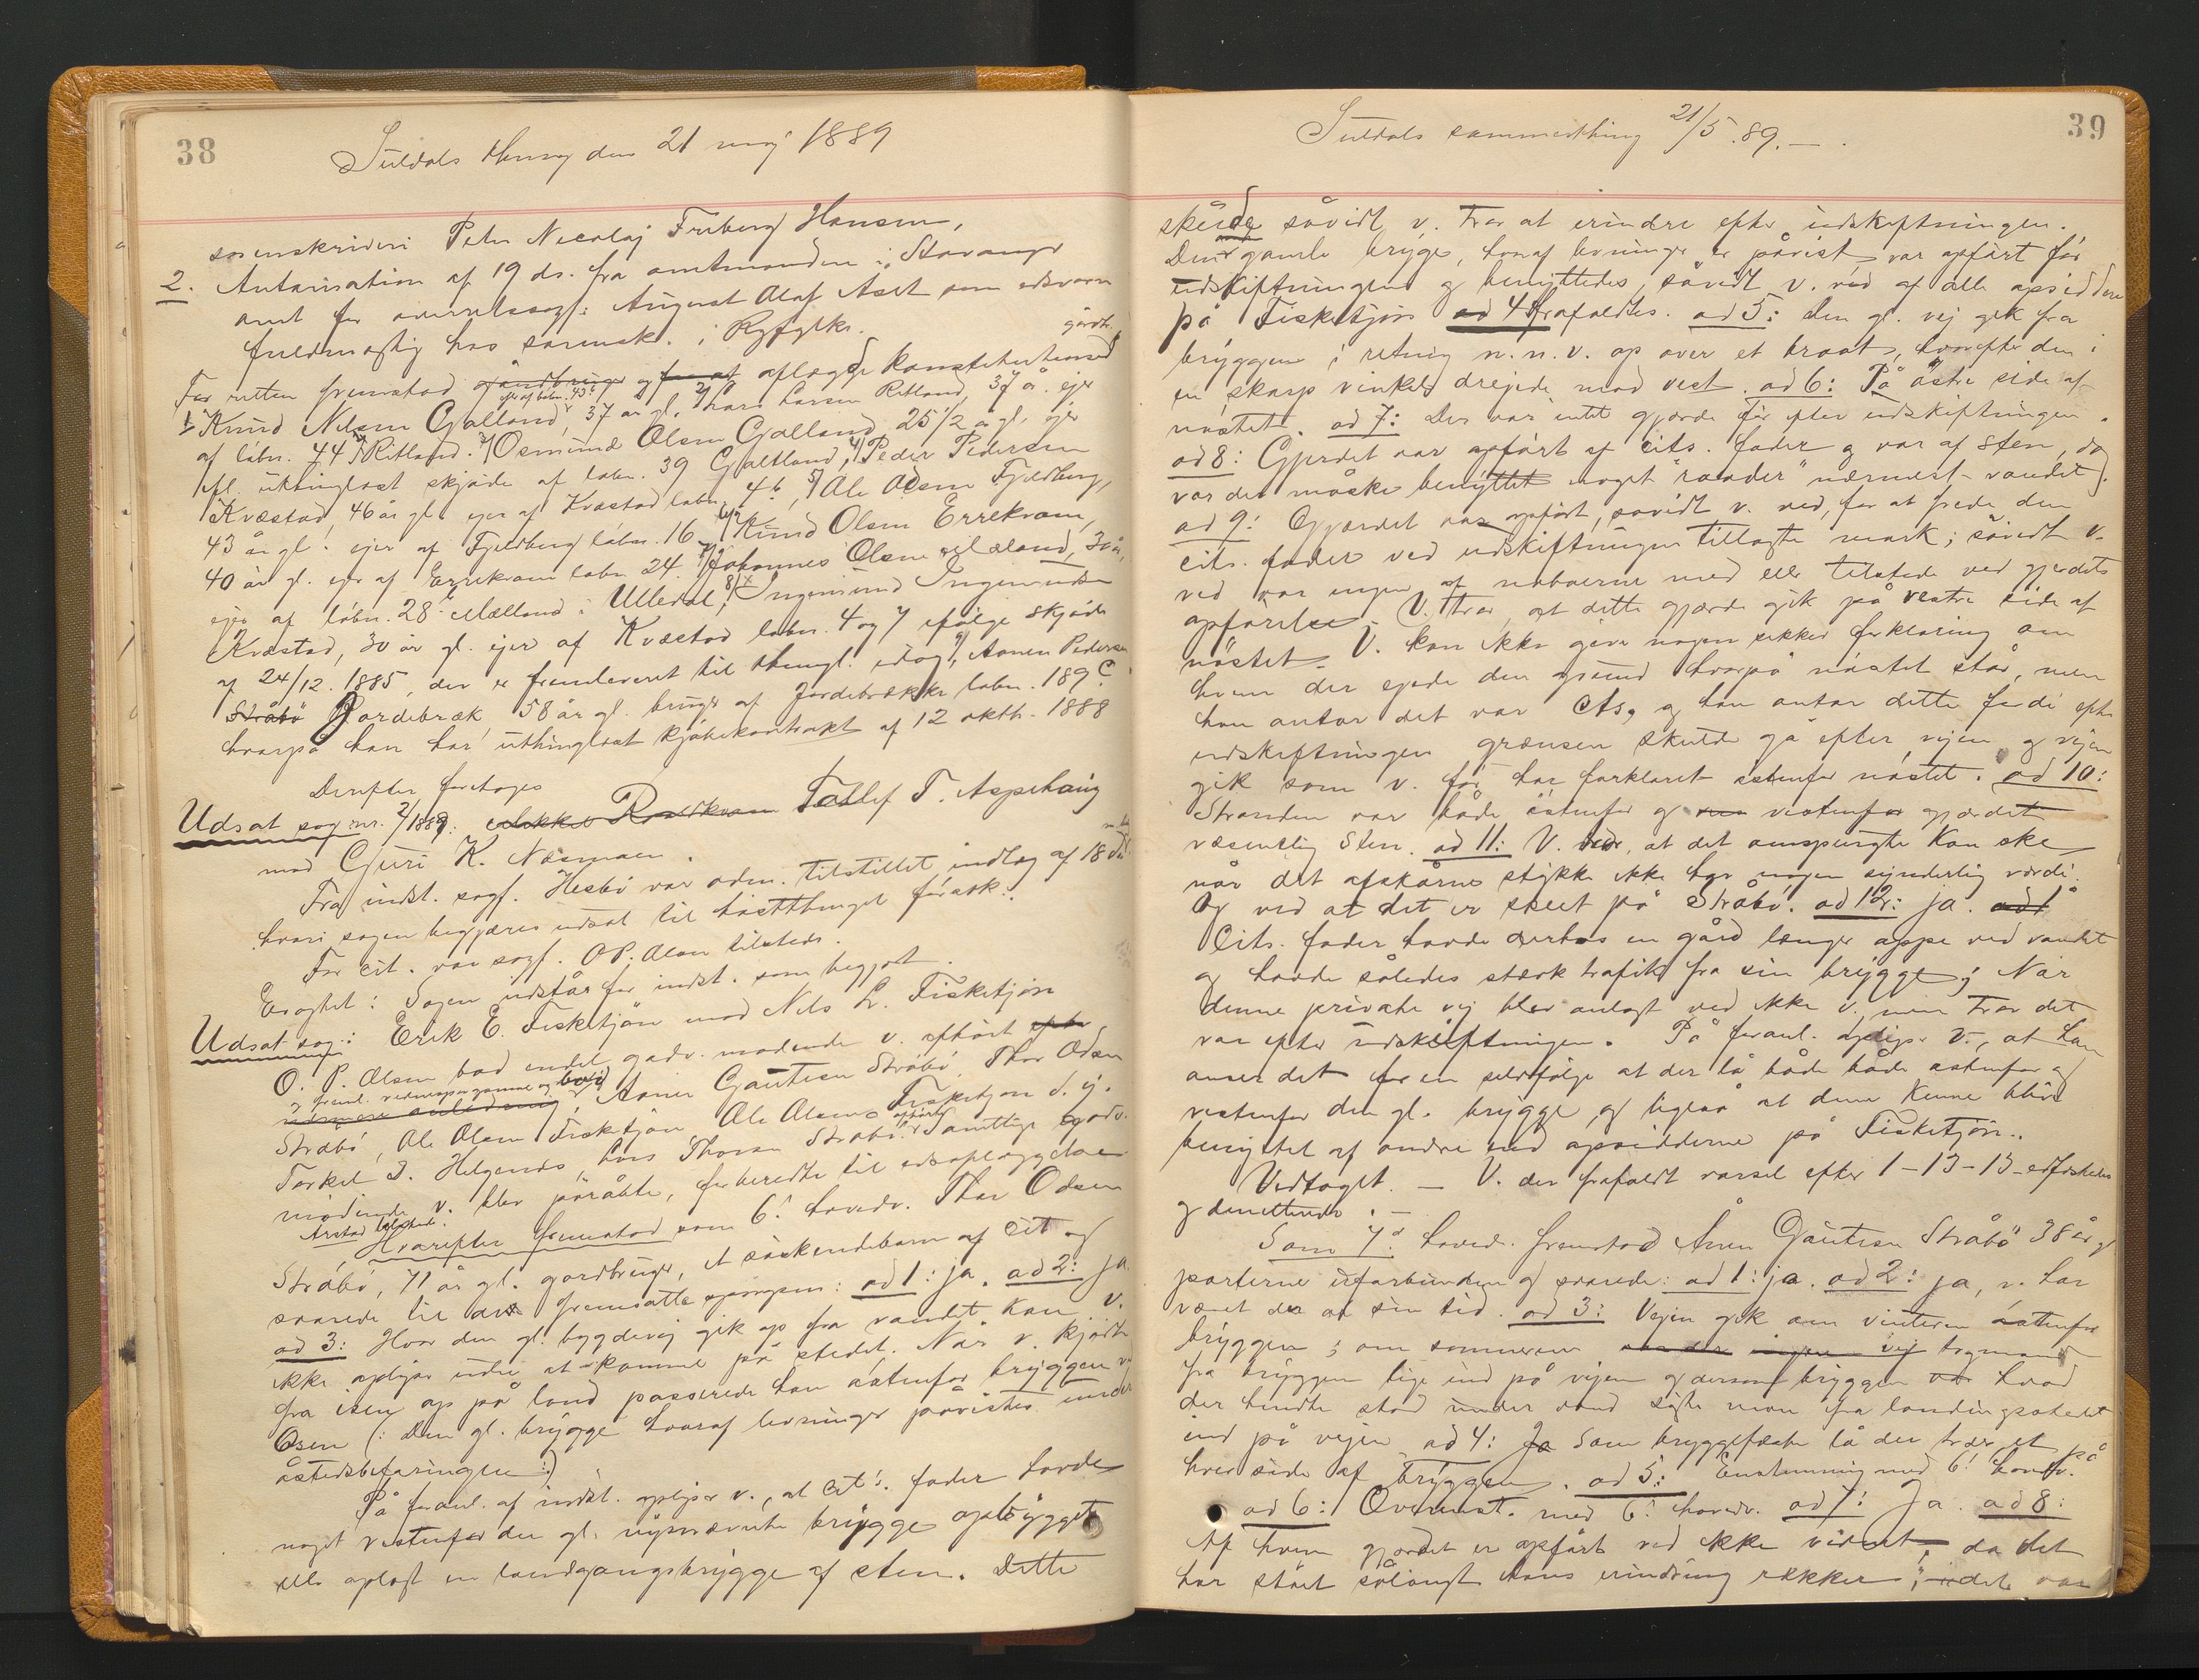 38
Suldals thing den 21 maj 1889
sorenskriveri Peter Nicolaj Friberg Hansen,
2. Autorisation af 19 ds. fra amtmanden i Stavanger
amt for overretssagf. August Olaf Aset som edsvoren
fuldmægtig hos sorensk. i Ryfylke.
For retten fremstod gårdbruger og for at aflægge konstitutionsed gårdbr.
1) Knud Nilsen Gjalland, 37 år gl. 2) Lars Larsen Ritland, 37 å. ejer
af labn. 44 Ritland. 3) Osmund Olsen Gjalland 25 1/2 år gl. ejer
ifl. uthinglæst skjøde af labn. 39 Gjaltland, 4) Peder Pedersen
Kvæstad, 46 år gl. ejer af Kvæstad labn. 4b, 5) Ole Olsen Fjeldberg,
43 år gl. ejer af Fjeldberg labn. 16, 6) Knud Olsen Errekvam,
40 år gl. ejer af Errekvam labn. 24. 7) Johannes Olsen Mæland, 30 år,
ejer af labn. 28 Mælland i Ulledal, 8) Ingemund Ingemundsen
Kvæstad, 30 år gl. ejer af Kvæstad labn. 4 og 7 ifølge skjøde
af 24/12. 1885, der er fremleveret til thingl. idag, 9) Aanen Pedersen
Stråbø Jordebræk 58 år gl. bruger af Jordebrække labn. 189 c
hvorpå han har uthinglæst kjøbekontrakt af 12 oktb. 1888
Derefter foretoges
Udsat sag nr. 2/1889: Tollef T. Aspehaug
mod Guri K. Næsmaen.
Fra indst. sagf. Hesbø var adm. tilstillet indlæg af 18 ds.
hvori sagen begjæres udsat til høstthingetførstk.
For cit. var sagf. O. P. Olsen tilstede.
Eragtet: Sagen udstår for indst. som begjært.
Udsat sag: Erik E. Fisketjøn mod Nils L. Fisketjøn
O. P. Olsen bad endel godv. mødende v. afhørt efter
nærmere anledning, Aanen Gautesen Stråbø, Thor Odsen
Stråbø, Ole Olsen Fisketjøn, Ole Olsen Fisketjøn d. y.
Torkel I. Helgenes, Lars Thorsen Stråbø afhørt. Samtlige godv.
mødende v. blev påråbte, forberedte til edsaflæggelsen
Hvorefter fremstod som 6! hovedv. Thor Odsen
Stråbø, 71 år gl. gårdbruger, et søskendebarn af cit og
svarede til de fremsatte spørgsm: ad 1: ja. ad 2: ja
ad 3: Hvor den gl. bygdevej gik op fra vandet kan v.
ikke oplyse uden at komme på stedet. Når v. kjørte
fra isen op på land passerede han østenfor bryggen v.
Osen (: den gl. brygge hvoraf levninger påvistes under
åstedsbefaringen:)
På foranl. af indst. oplyser v., at cit's. fader havde
noget vestenfor den gl. nysnævnte brygge opbygget
elle oplagt en landgangsbrygge af sten. Dette
39
Suldals sommerthing 21/5.89.
skeede såvidt v. tror at erindre efter udskiftningen.
Den gamle brygge, hvoraf levninger er påvist var opført før
udskiftningen og benyttedes, såvidt v. ved af alle opsiddere
på Fisketjøn ad 4 frafaldtes. ad 5: Den gl. vej gik fra
bryggen i retning n.n.v. op over et braat, hvorefter den i
en skarp vinkel drejede mod vest. ad 6: På østre side af
nøstet. ad 7: Der var intet gjærde før efter udskiftningen.
ad 8: Gjerdet var opført af cits. fader og var af sten, dog
var der måske benyttet noget "raander" nærmest vandet).
ad 9: Gjærdet var opført, såvidt v. ved, for at frede den
cits. fader ved udskiftningen tillagte mark; såvidt v.
ved var ingen af naboerne med eller tilstede ved gjerdets
opførelse. V. tror, at dette gjærde gik på vestre side af
nøstet. V. kan ikke give nogen sikker forklaring om
hvem der ejede den grund hvorpå nøstet står, men
han antar det var cits, og han antar dette fordi efter
udskiftningen grænsen skulde gå efter vejen og vejen
gik som v. før har forklaret østenfor nøstet. ad 10:
Stranden var både østenfor og vestenfor gjærdet
væsentlig sten. ad 11: V. ved, at det omspurgte kan ske
når det afskårne stykke ikke har nogen synderlig værdi.
Og ved at det er skeet på Stråbø. ad 12: ja.
Cits. fader havde derhos en gård længer oppe ved vandet
og havde således stærk trafik fra sin brygge; Når
denne private vej blev anlagt ved ikke v. men tror det
var efter udskiftningen. På foranl. oplyser v., at han
anser det for en selvfølge at der lå både både østenfor og
vestenfor den gl. brygge og ligeså at denne kunne blive
benyttet af andre end opsidderne på Fisketjøn.
Vedtaget. — V. der frafaldt varsel efter 1-13-13 edfæstedes
og demitteredes.
Som 7d hovedv. fremstod Aanen Gautesen Stråbø 38 år gl
parterne uforbunden og svarede: ad 1: ja. ad 2: ja, v. har
været der al sin tid. ad 3: Vejen gik om vinteren østenfor
bryggen; om sommeren tog man
fra bryggen lige ind på vejen og dersom bryggen hvad
der hendte stod under vand søgte man fra landingsstedet
ind på vejen. ad 4: Ja Som bryggefæste lå der træer et på
hver side af bryggen. ad 5: Enstemmig med 6! hovedv.
ad 6: Overenst. med 6! hovedv. ad 7: Ja. ad 8:
Af hvem gjærdet er opført ved ikke vidnet, da det
har stået sålangt hans erindring rækker; det var